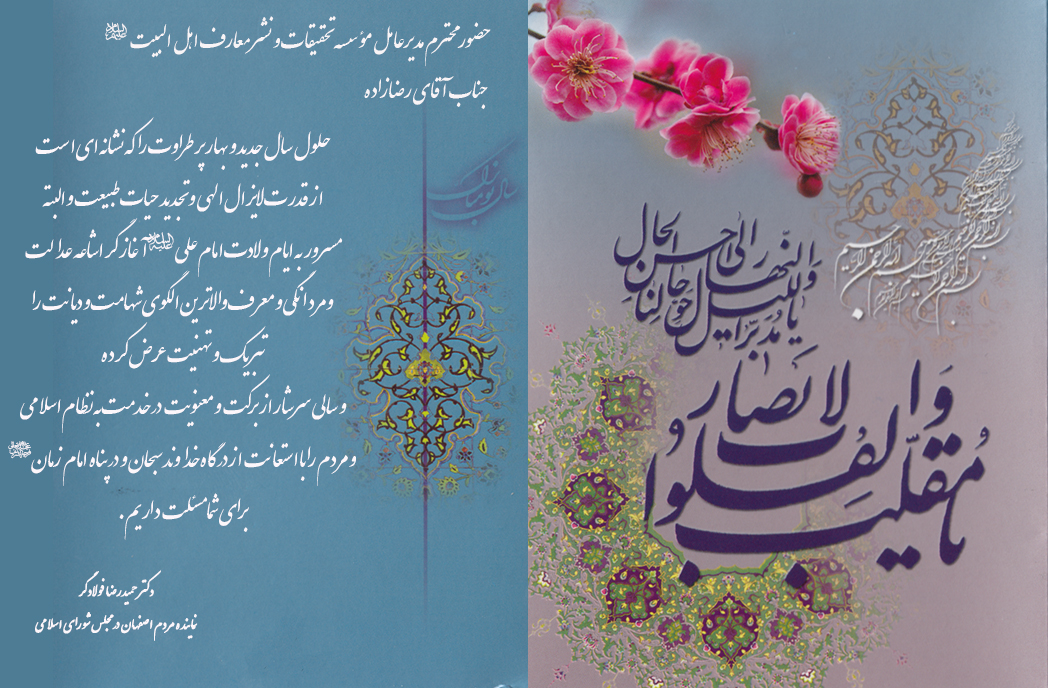 حضور محترم مدیرعامل مؤسسه تحقیقات و نشر معارف اهل البیت علیهم‌السلام
جناب آقای رضازاده
حلول سال جدید و بهار پر طراوت را که نشانه ای است
از قدرت لایزال الهی و تجدید حیات طبیعت و البته
مسرور به ایام ولادت امام علی علیه‌السلام آغازگر اشاعه عدالت
و مردانگی و معرف والاترین الگوی شهامت و دیانت را
تبریک و تهنیت عرض کرده
و سالی سرشار از برکت و معنویت در خدمت به نظام اسلامی
و مردم را با استعانت از درگاه خداوند سبحان و در پناه امام زمان
برای شما مسئلت داریم.
دکتر حمیدرضا فولادگر
نماینده مردم اصفهان در مجلس شورای اسلامی
یا مقلب القلوب
والابصار
یا مدبر اللیل والنهار
حول حالنا الی احسن الحال